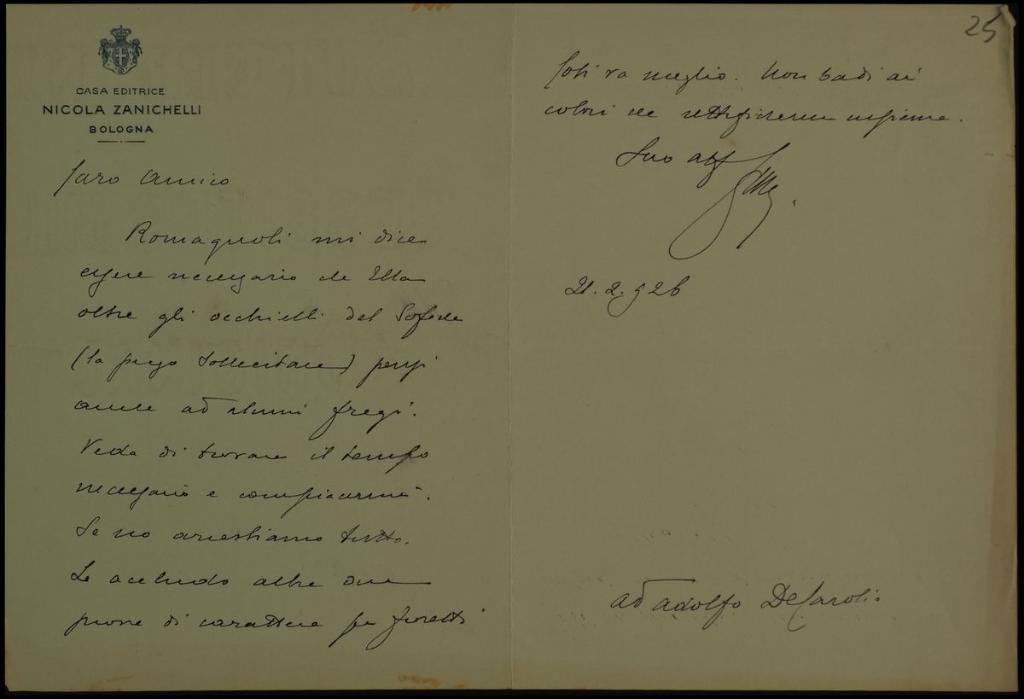 CASA EDITRICE
NICOLA ZANICHELLI
BOLOGNA
Caro Amico
Romagnoli mi dice
essere necessario che Ella
oltre gli occhielli del Sofocle
(la prego sollecitare) pensi
anche ad alcuni fregi.
Veda di trovare il tempo
necessario e compiacermi.
Se no arrestiamo tutto.
Le accludo altre due
prove di carattere pei fioretti
25
Così va meglio. Non badi ai
colori che rettificheremo insieme.
Suo aff
21.2.926
ad Adolfo De Carolis